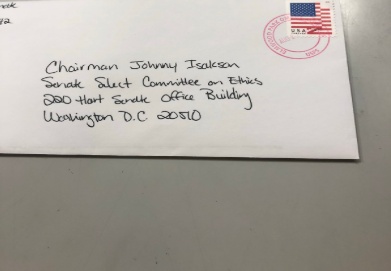 Chairman Johnny Isakson
Senate Select Committee on Ethics
220 Hart Senate Office Building
Washington D.C 20510
USA